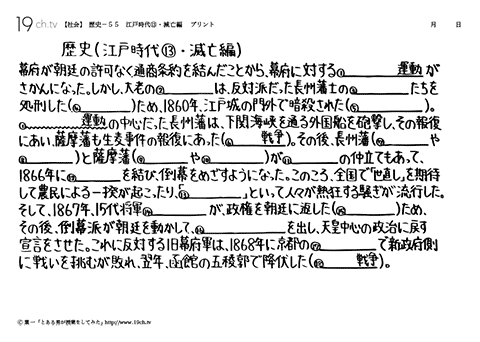 19ch.tv 【社会】 歴史-55 江戸時代⑬・滅亡編 プリント 月 日
歴史(江戸時代⑬・滅亡編)
幕府が朝廷の許可なく通商条約を結んだことから、幕府に対する 運動が
さかんになった。しかし、大老の は、反対派だった長州藩士の たちを
処刑した( )ため、1860年、江戸城の門外で暗殺された( )。
運動の中心だった長州藩は、下関海峡を通る外国船を砲撃し、その報復
にあい、薩摩藩も生麦事件の報復にあった( 戦争)。その後、長州藩( や
)と薩摩藩( や )が の仲立でもあって、
1866年に を結び、倒幕をめざすようになった。このころ、全国で「世直し」を期待
して農民による一揆が起こったり、「 」といって人々が熱狂する騒ぎが流行した。
そして、1867年、15代将軍 が、政権を朝廷に返した( )ため、
その後、倒幕派が朝廷を動かして、 を出し、天皇中心の政治に戻す
宣言をさせた。これに反対する旧幕府軍は、1868年に京都の で新政府側
に戦いを挑むが敗れ、翌年、函館の五稜郭で降伏した( 戦争)。
© 葉一「とある男が授業をしてみた」http://www.19ch.tv